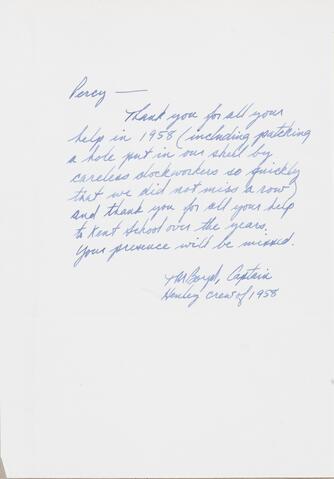 Percy —
Thank you for all your
help in 1958 (including patching
a hole put in our shell by
careless dockworkers so quickly
that we did not miss a row)
and thank you for all your help
to Kent School over the years.
Your presence will be missed.
Captain
Henley crew of 1958